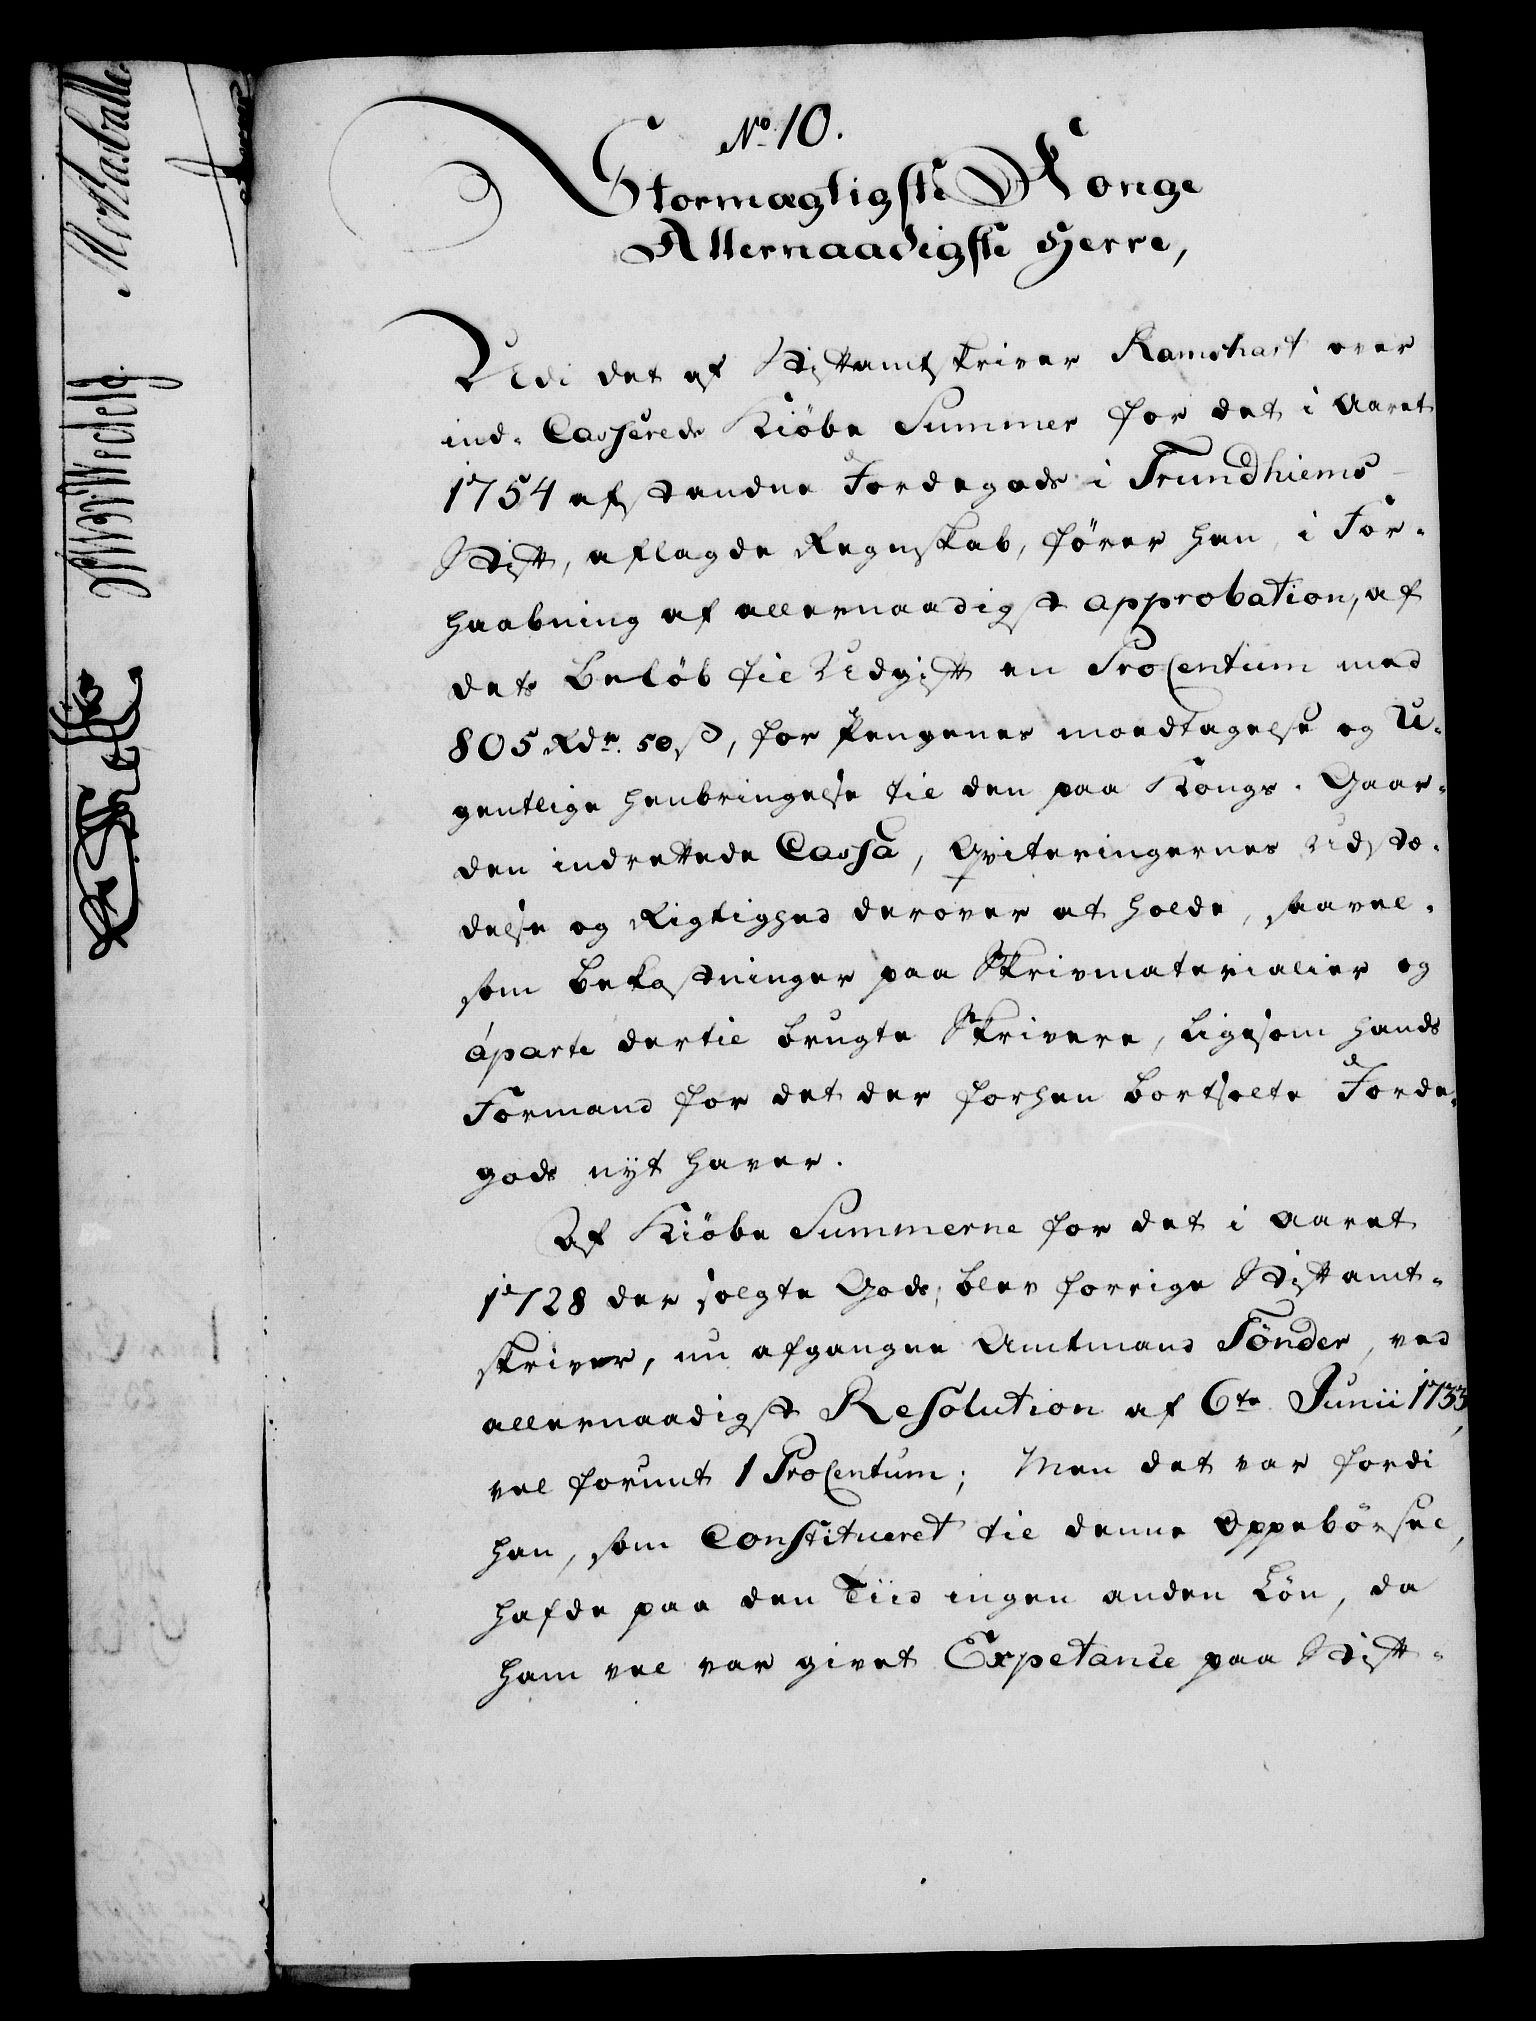 No. 10.
Stormægtigste Konge
Allernaadigste Herre,
Udi det af Stiftamtskriver Ramshart over
ind-Casserede Kiöbe Summer for det i Aaret
1754 afstandne Jordegods i Trundhiems
Stift, aflagde Regnskab, förer han i For-
haabning af allernaadigst approbation, af
dets Belöb til Udgift en ProCentum med
805 Rdr. 50 ß, for Pengenes modtagelse og U-
gentlige henbringelse til den paa Kongs-Gaar-
den indrettede Cassa, Qviteringernes Udstæ-
delse og Rigtighed derover at holde, saavel-
som Bekostninger paa Skrivmaterialier og
áparte dertil brugte Skrivere, ligesom hands
Formand for det der forhen bortsolte Jorde-
gods nÿt haver.
Af Kiöbe Summerne for det i Aaret
1728 der solgte Gods, blev forrige Stiftamt-
skriver, nu afgangne Amtmand Tönder, ved
allernaadigst Resolution af 6te Junii 1733,
vel forunt 1 ProCentum; Men det var fordi
han, som Constitueret til denne Oppebörsel,
hafde paa den Tiid ingen anden Lön, da
ham vel var givet Expetance paa Stift-